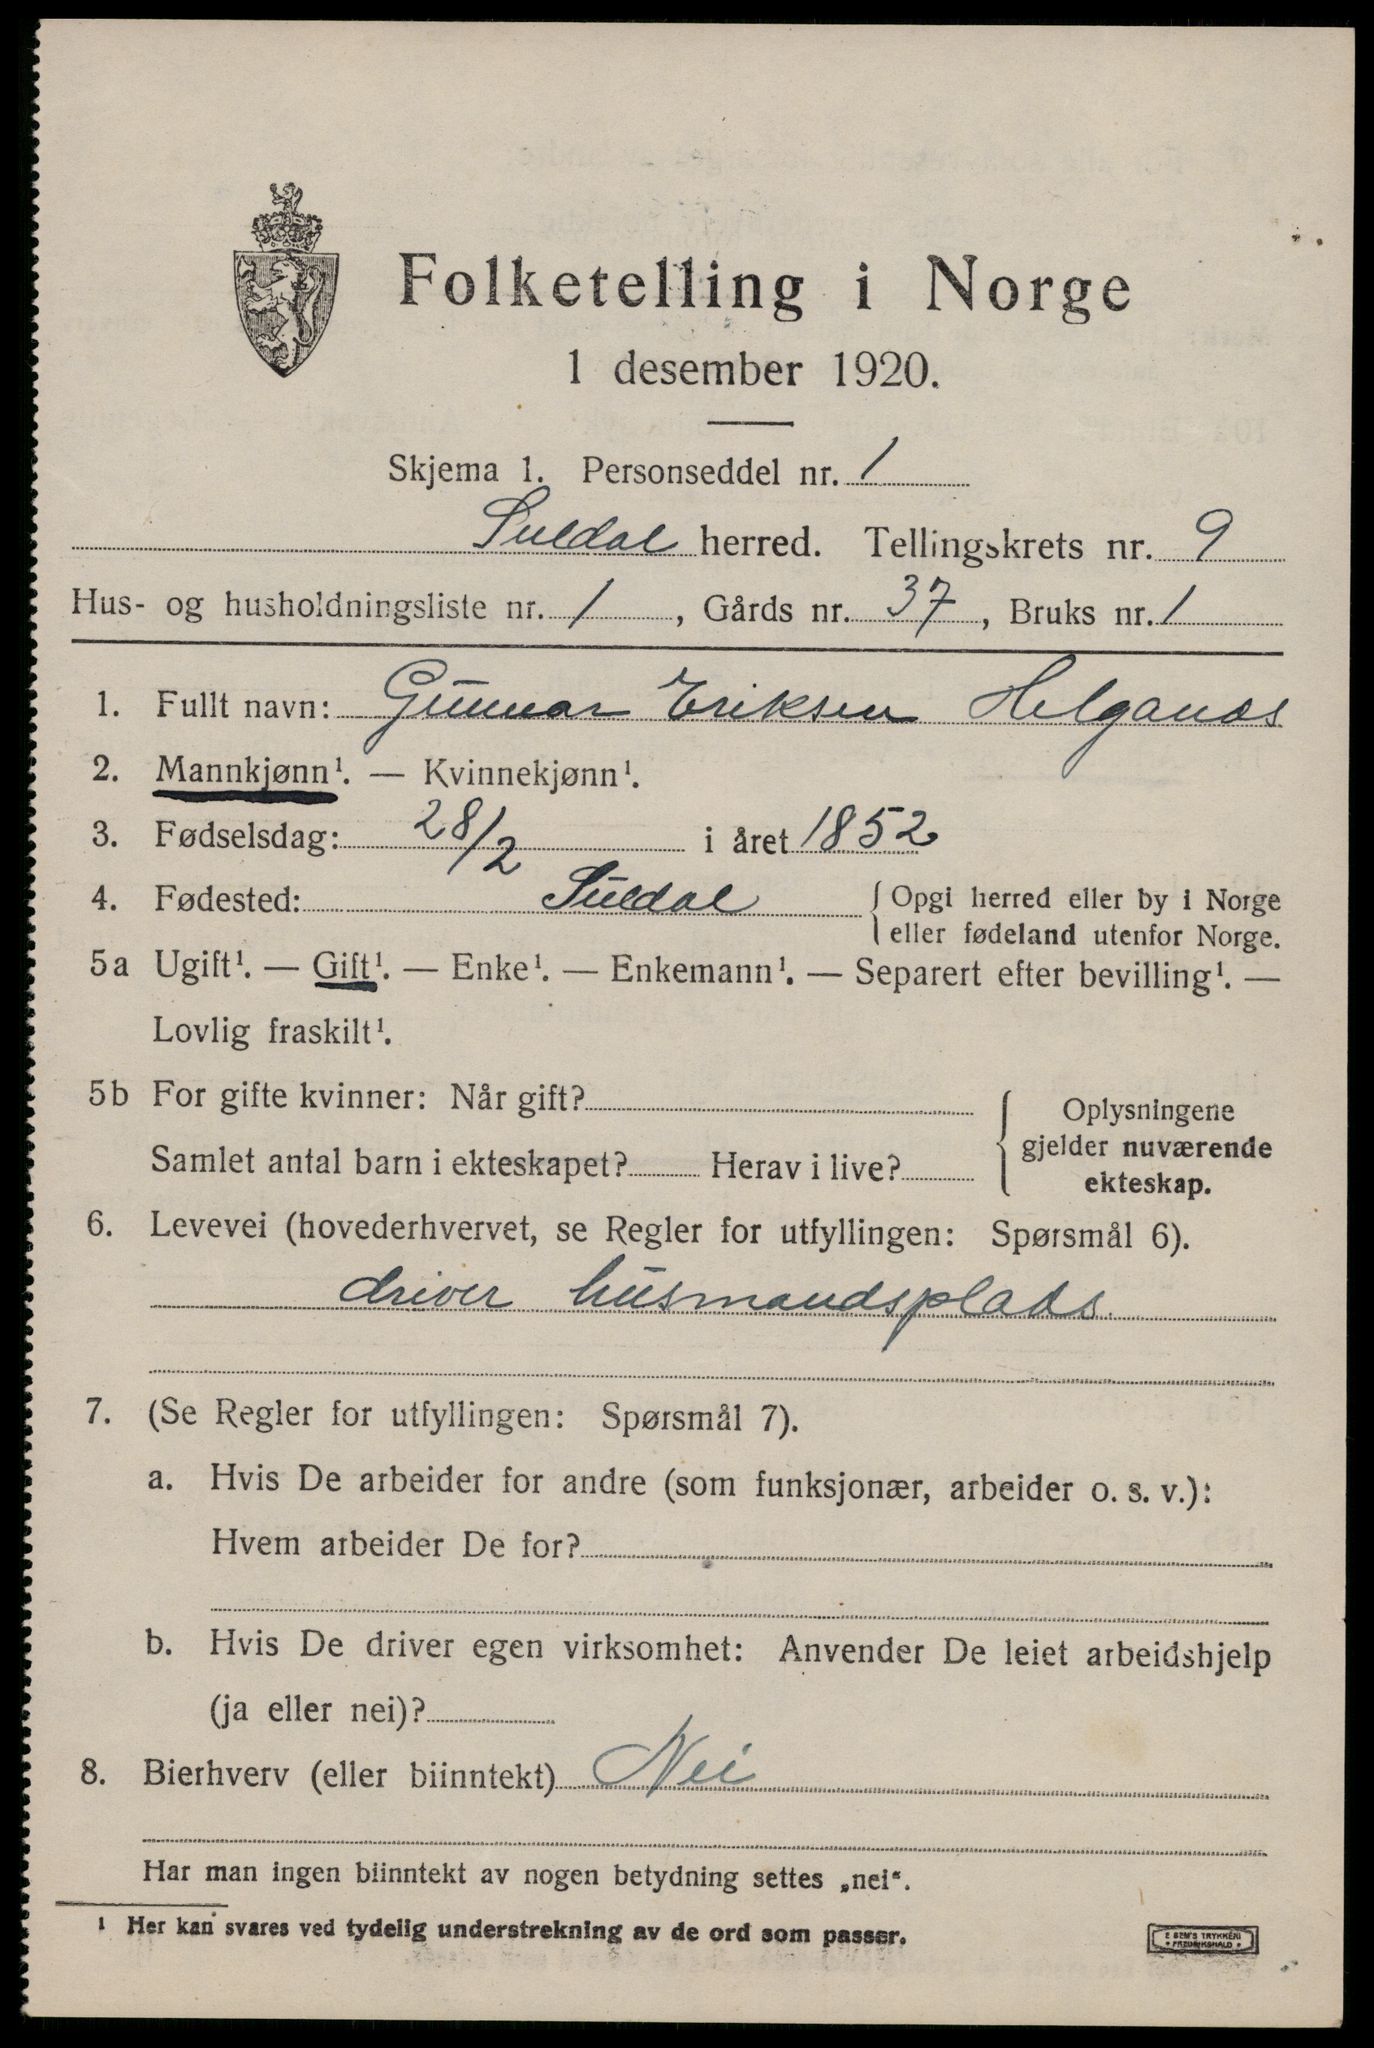 Folketelling i Norge
1 desember 1920.
Skjema 1. Personseddel nr. 1
Suldal herred. Tellingskrets nr. 9
Hus- og husholdningsliste nr. 1, Gårds nr. 37, Bruks nr. 1
1. Fullt navn: Gunnar Eriksen Helganes
2. Mannkjønn¹. — Kvinnekjønn¹.
3. Fødselsdag: 28/2 i året 1852
4. Fødested: Suldal { Opgi herred eller by i Norge
eller fødeland utenfor Norge.
5a Ugift¹. — Gift¹. — Enke¹. — Enkemann¹. — Separert efter bevilling¹. —
Lovlig fraskilt¹.
5b For gifte kvinner: Når gift?
Samlet antal barn i ekteskapet? Herav i live?
{ Oplysningene
gjelder nuværende
ekteskap.
6. Levevei (hovederhvervet, se Regler for utfyllingen: Spørsmål 6).
driver husmandsplads.
7. (Se Regler for utfyllingen: Spørsmål 7).
a. Hvis De arbeider for andre (som funksjonær, arbeider o. s. v.):
Hvem arbeider De for?
b. Hvis De driver egen virksomhet: Anvender De leiet arbeidshjelp
(ja eller nei)?
8. Bierhverv (eller biinntekt) Nei
Har man ingen biinntekt av nogen betydning settes „nei“.
¹ Her kan svares ved tydelig understrekning av de ord som passer.
E SEM'S TRYKKERI
• FREDRIKSHALD •